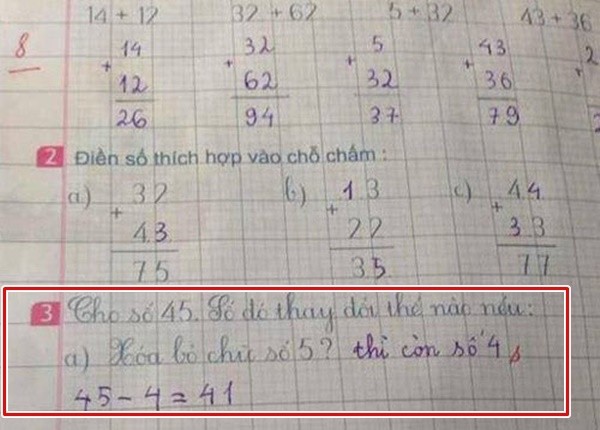 14 + 12 32 + 62 5 + 32 43 + 36
8
14 32 5 43 2
+ + + + +
12 62 32 36
26 94 37 79
2 Điền số thích hợp vào chỗ chấm :
a) 32 b) 13 c) 44
+ + +
43 22 33
75 35 77
3 Cho số 45. Số đó thay đổi thế nào nếu:
a) Xóa bỏ chữ số 5? thì còn số 4
45 - 4 = 41